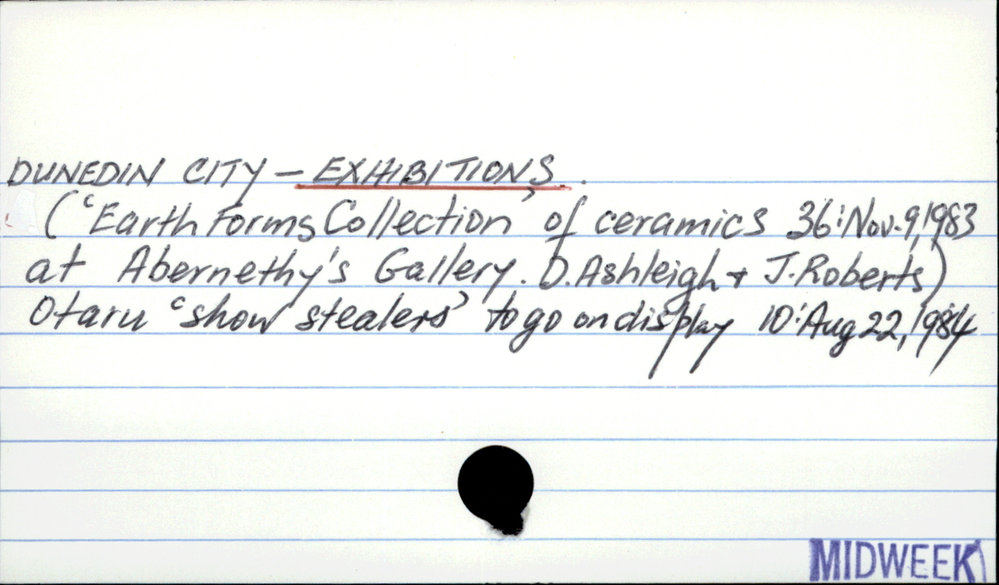 DUNEDIN CITY - EXHIBITIONS.
('Earth Forms Collection' of ceramics 36:Nov.9,1983
at Abernethy's Gallery. D.Ashleigh + J.Roberts)
Otaru 'show stealers' to go on display 10:Aug 22, 1984
MIDWEEK